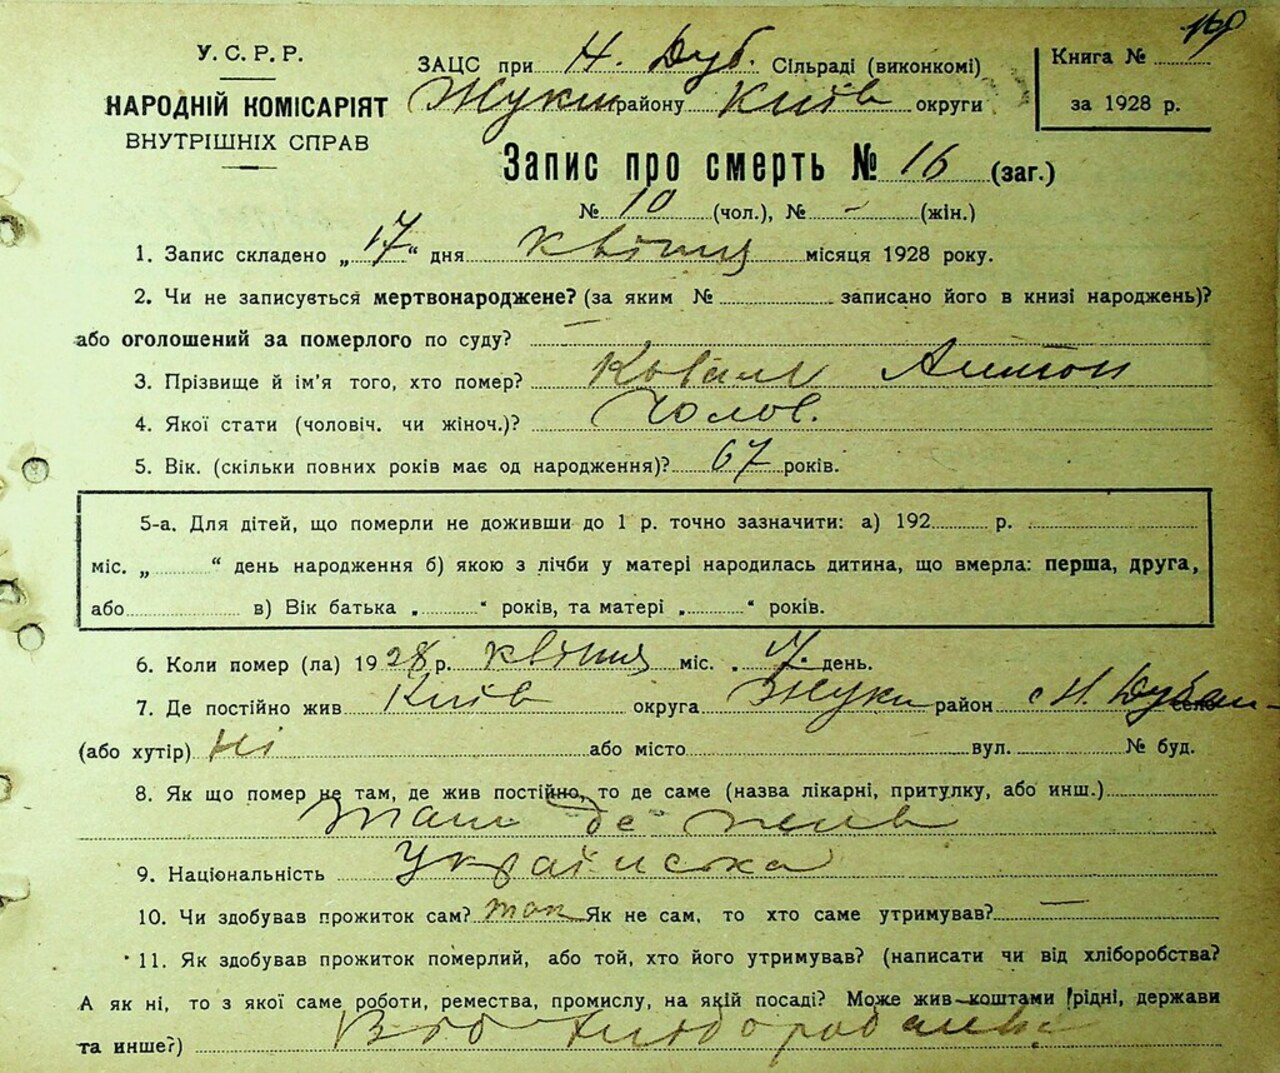 169
У. С. Р. Р.
НАРОДНІЙ КОМІСАРІЯТ
ВНУТРІШНІХ СПРАВ
ЗАЦС при Н. Дуб. Сільраді (виконкомі)
Жукин району Київ округи
Книга №
за 1928 р.
Запис про смерть № 16 (заг.)
№ 10 (чол.), № - (жін.)
1. Запис складено „17“ дня квітня місяця 1928 року.
2. Чи не записується мертвонароджене? (за яким № записано його в книзі народжень)?
або оголошений за померлого по суду? —
3. Прізвище й ім'я того, хто помер? Коваль Антон
4. Якої стати (чоловіч. чи жіноч.)? Чолов.
5. Вік. (скільки повних років має од народження)? 67 років.
5-а. Для дітей, що померли не доживши до 1 р. точно зазначити: а) 192 р.
міс. „ “ день народження б) якою з лічби у матері народилась дитина, що вмерла: перша, друга,
або в) Вік батька „ “ років, та матері „ “ років.
6. Коли помер (ла) 1928 р. квітня міс. 7. день.
7. Де постійно жив Київ округа Жукин район с Н. Дубеч-
(або хутір) ні або місто вул. № буд.
8. Як що помер не там, де жив постійно, то де саме (назва лікарні, притулку, або инш.)
Там де жив
9. Національність Українська
10. Чи здобував прожиток сам? так Як не сам, то хто саме утримував? —
11. Як здобував прожиток померлий, або той, хто його утримував? (написати чи від хліборобства?
А як ні, то з якої саме роботи, ремества, промислу, на якій посаді? Може жив коштами рідні, держави
та инше?) Від